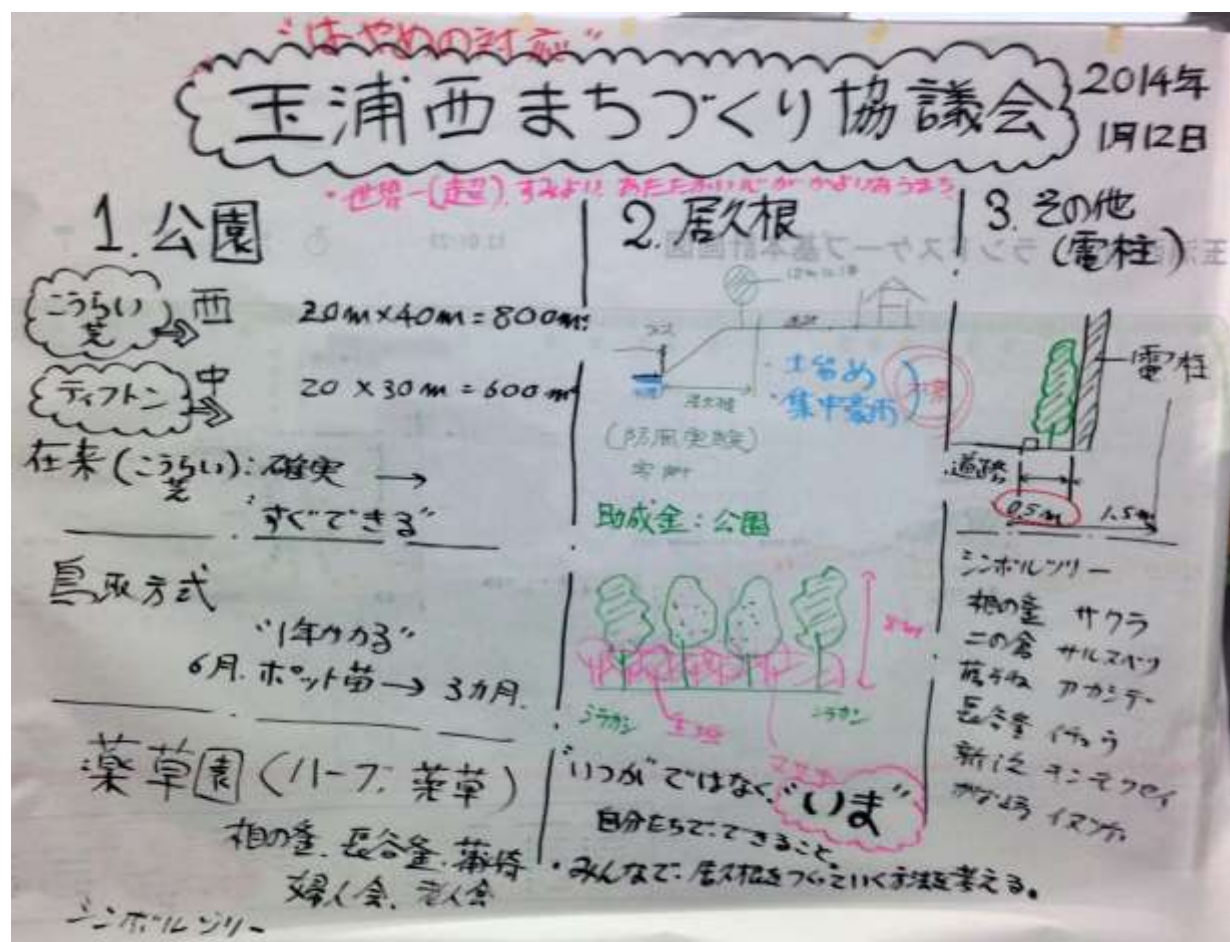 "はやめの対応"
玉浦西まちづくり協議会
2014年
1月12日
・世界一(超)すみよい あたたかい心が かよいあうまち
1. 公園
こうらい芝
西 20m×40m=800m²
ティフトン
中 20×30m=600m²
在来(こうらい芝):確実 →
"すぐできる"
鳥取方式
"1年かかる"
6月.ポット苗→3カ月.
薬草園(ハーブ.薬草)
相の釜.長谷釜.藤
婦人会.老人会
シンボルツリー
2. 居久根
・土留め
・集中豪雨
(防風実験)
助成金:公園
8m
シラカシ
生垣
シラカシ
"いつか"ではなく、"いま"
自分たちで、できること。
・みんなで、居久根をつくっていく方法を考える。
3. その他
(電柱)
電柱
道路
0.5m
1.5m
シンボルツリー
相の釜 サクラ
二の倉 サルスベリ
アカシデ
長谷釜 イチョウ
キンモクセイ